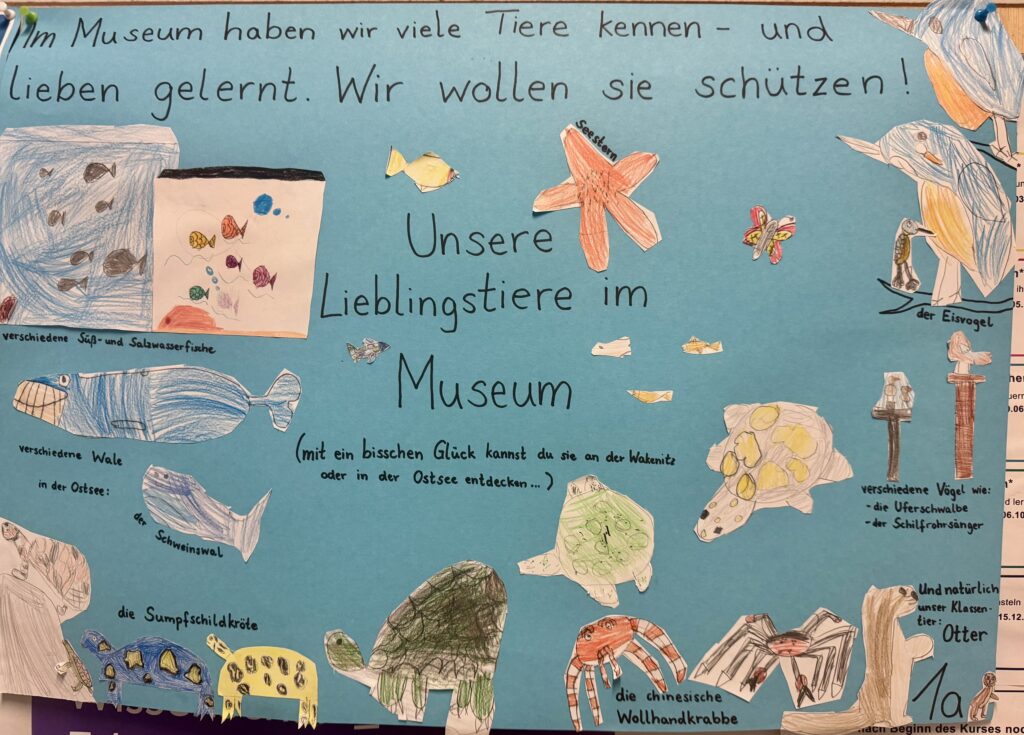 Im Museum haben wir viele Tiere kennen - und
lieben gelernt. Wir wollen sie schützen!
Seestern
Unsere
Lieblingstiere im
Museum
(mit ein bisschen Glück kannst du sie an der Wakenitz
oder in der Ostsee entdecken...)
verschiedene Süß- und Salzwasserfische
verschiedene Wale
in der Ostsee:
der Schweinswal
der Eisvogel
verschiedene Vögel wie:
- die Uferschwalbe
- der Schilfrohrsänger
die Sumpfschildkröte
die chinesische
Wollhandkrabbe
Und natürlich
unser Klassen-
tier:
Otter
1a
nach Beginn des Kurses noc